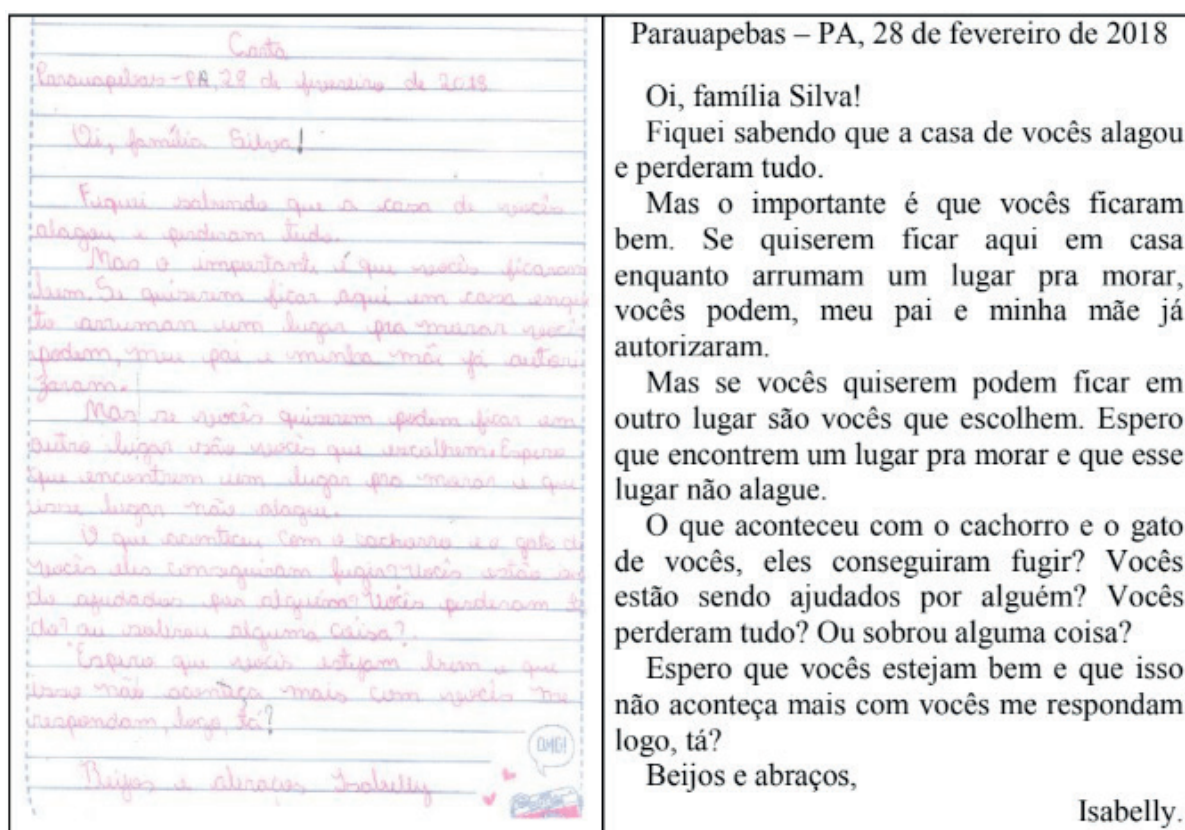 Carta
Parauapebas-PA, 28 de fevereiro de 2018
Oi, família Silva!
Fiquei sabendo que a casa de vocês
alagou e perderam tudo.
Mas o importante é que vocês ficaram
bem. Se quiserem ficar aqui em casa enqu
to arrumam um lugar pra morar vocês
podem, meu pai e minha mãe já autori
zaram.
Mas se vocês quiserem podem ficar em
outro lugar são vocês que escolhem. Espero
que encontrem um lugar pra morar e que
esse lugar não alague.
O que aconteceu com o cachorro e o gato de
vocês eles conseguiram fugir? Vocês estão
do ajudados por alguém? Vocês perderam
do? ou sobrou alguma coisa?.
Espero que vocês estejam bem e que
isso não aconteça mais com vocês me
respondam, logo, tá?
OMG!
Beijos e abraços Isabelly
Parauapebas – PA, 28 de fevereiro de 2018
Oi, família Silva!
Fiquei sabendo que a casa de vocês alagou
e perderam tudo.
Mas o importante é que vocês ficaram
bem. Se quiserem ficar aqui em casa
enquanto arrumam um lugar pra morar,
vocês podem, meu pai e minha mãe já
autorizaram.
Mas se vocês quiserem podem ficar em
outro lugar são vocês que escolhem. Espero
que encontrem um lugar pra morar e que esse
lugar não alague.
O que aconteceu com o cachorro e o gato
de vocês, eles conseguiram fugir? Vocês
estão sendo ajudados por alguém? Vocês
perderam tudo? Ou sobrou alguma coisa?
Espero que vocês estejam bem e que isso
não aconteça mais com vocês me respondam
logo, tá?
Beijos e abraços,
Isabelly.